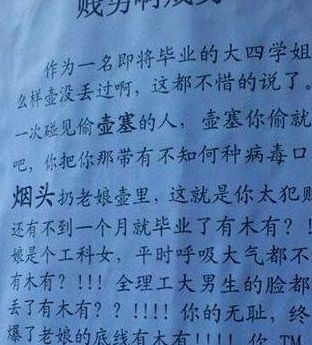 作为一名即将毕业的大四学姐
么样壶没丢过啊，这都不惜的说了。
一次碰见偷壶塞的人，壶塞你偷就
吧，你把你那带有不知何种病毒口
烟头扔老娘壶里，这就是你太犯贱
还有不到一个月就毕业了有木有？！
娘是个工科女，平时呼吸大气都不
有木有？！！！全理工大男生的脸都
丢了有木有？？！！！！你的无耻，终
爆了老娘的底线有木有！！！！你 TM